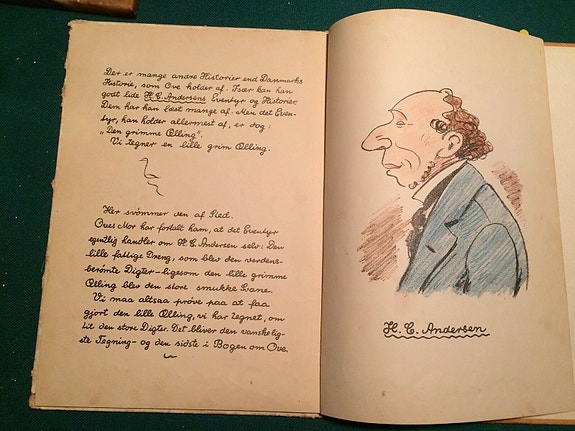 Der er mange andre Historier end Danmarks
Historie, som Ove holder af. Især kan han
godt lide H. C. Andersens Eventyr og Historier.
Dem har han læst mange af. Men det Even-
tyr, han holder allermest af, er dog:
"Den grimme Ælling".
Vi tegner en lille grim Ælling.
Her svømmer den af Sted.
Oves Mor har fortalt ham, at det Eventyr
egentlig handler om H. C. Andersen selv: Den
lille fattige Dreng, som blev den verdens-
berømte Digter - ligesom den lille grimme
Ælling blev den store smukke Svane.
Vi maa altsaa prøve paa at faa
gjort den lille Ælling, vi har tegnet, om
til den store Digter. Det bliver den vanskelig-
ste Tegning - og den sidste i Bogen om Ove.
H. C. Andersen